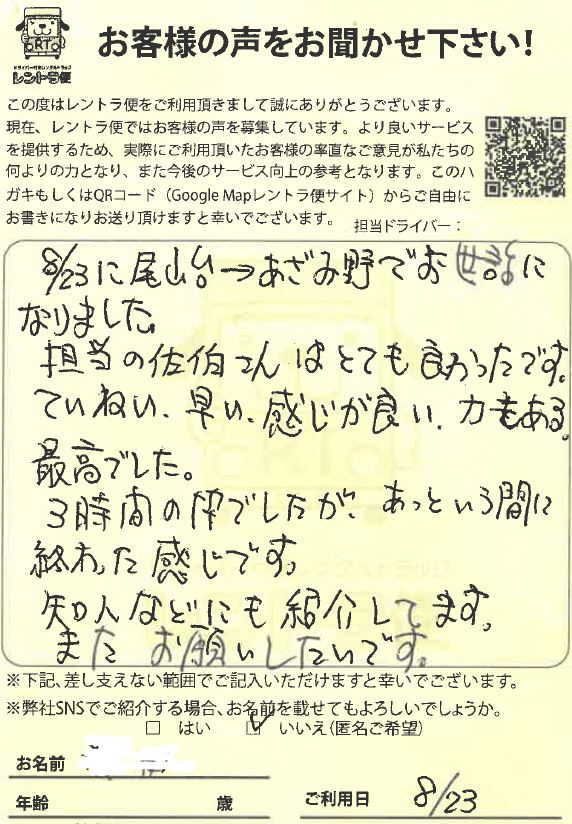 RT
ドライバー付きレンタルトラック
レントラ便
お客様の声をお聞かせ下さい!
この度はレントラ便をご利用頂きまして誠にありがとうございます。
現在、レントラ便ではお客様の声を募集しています。より良いサービス
を提供するため、実際にご利用いただいたお客様の率直なご意見が私たちの
何よりの力となり、また今後のサービス向上の参考となります。このハ
ガキもしくはQRコード（Google Mapレントラ便サイト）からご自由に
お書きになりお送り頂けますと幸いでございます。 担当ドライバー：
8/23に尾山台→あざみ野でお世話に
なりました。
担当の佐伯さんはとても良かったです。
ていねい、早い、感じが良い、力もある。
最高でした。
3時間の枠でしたが、あっという間に
終わった感じです。
知人などにも紹介してます。
またお願いしたいです。
※下記、差し支えない範囲でご記入いただけますと幸いでございます。
※弊社SNSでご紹介する場合、お名前を載せてもよろしいでしょうか。
□ はい ☑ いいえ（匿名ご希望）
お名前
年齢 歳 ご利用日 8/23